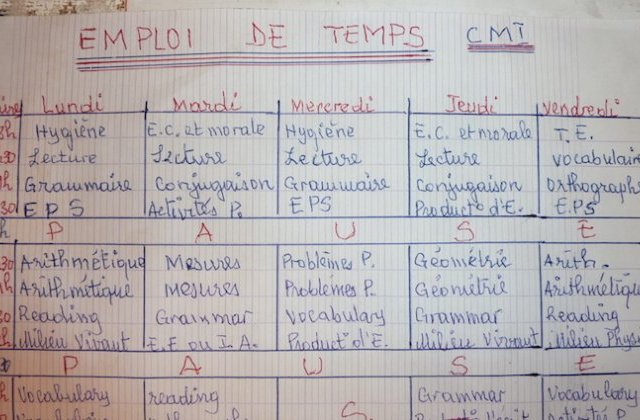 EMPLOI DE TEMPS CM1
Lundi Mardi Mercredi Jeudi Vendredi
Hygiène E.C. et morale Hygiène E.C. et morale T.E.
Lecture Lecture Lecture Lecture vocabulair
Grammaire Conjugaison Grammaire Conjugaison Orthographi
EPS Activités P. EPS Product° d'E. E.PS
P A U S E
Arithmétique Mesures Problèmes P. Géométrie Arith.
Arithmitique Mesures Problèmes P. Géométrie Arithmétique
Reading Grammar Vocabulary Grammar Reading
Milieu Vivant E.E ou I.A. Product° d'E. Milieu Vivant Milieu Phys
P A U S E
Vocabulary reading Grammar Vocabulary